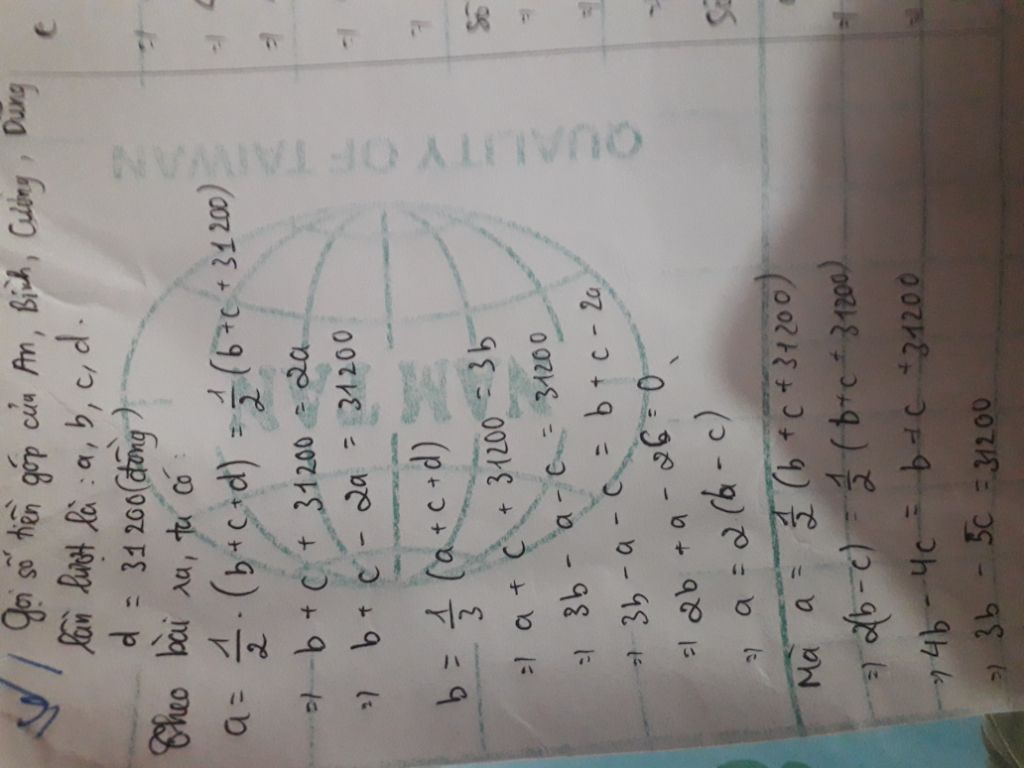 Gọi số tiền góp của An, Bình, Cường, Dũng
lần lượt là : a, b, c, d.
d = 31 200 (đồng)
Theo bài ra, ta có :
a = 1/2 . (b + c + d) = 1/2 (b + c + 31 200)
=) b + c + 31 200 = 2a
=) b + c - 2a = 31 200
b = 1/3 (a + c + d)
=) a + c + 31200 = 3b
=) 3b - a - c = 31200
=) 3b - a - c = b + c - 2a
=) 2b + a - 2c = 0
=) a = 2 (b - c)
Mà a = 1/2 (b + c + 31 200)
=) 2(b - c) = 1/2 (b + c + 31200)
=) 4b - 4c = b + c + 31200
=) 3b - 5c = 31200
QUALITY OF TAIWAN
NAM